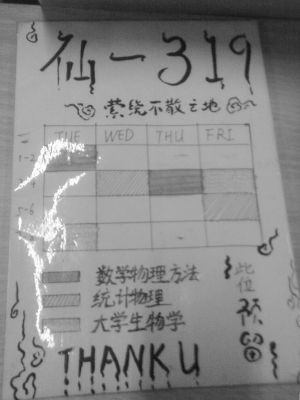 仙一319
萦绕不散之地
TUE WED THU FRI
1-2
4
5-6
数学物理方法
统计物理
大学生物学
此位预留
THANK U